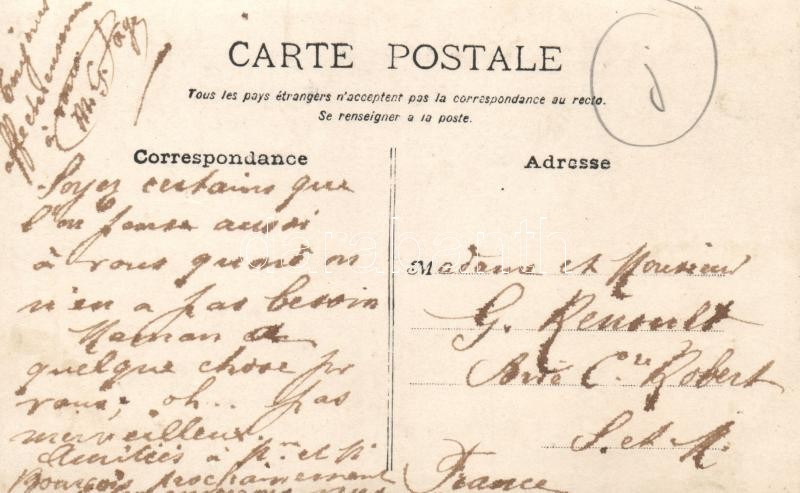 CARTE POSTALE
Tous les pays étrangers n'acceptent pas la correspondance au recto.
Se renseigner a la poste.
Correspondance
Soyez certains que
l'on pense aussi
à vous quand on
n'en a pas besoin
Maman a
quelque chose pr
vous; oh.. pas
merveilleux.
Amitiés à Mme et M.
prochainement
Toujours
affectueusement
à vous
Adresse
Madame et Monsieur
G. Renoult
Brie Cte Robert
S. et M.
France
j